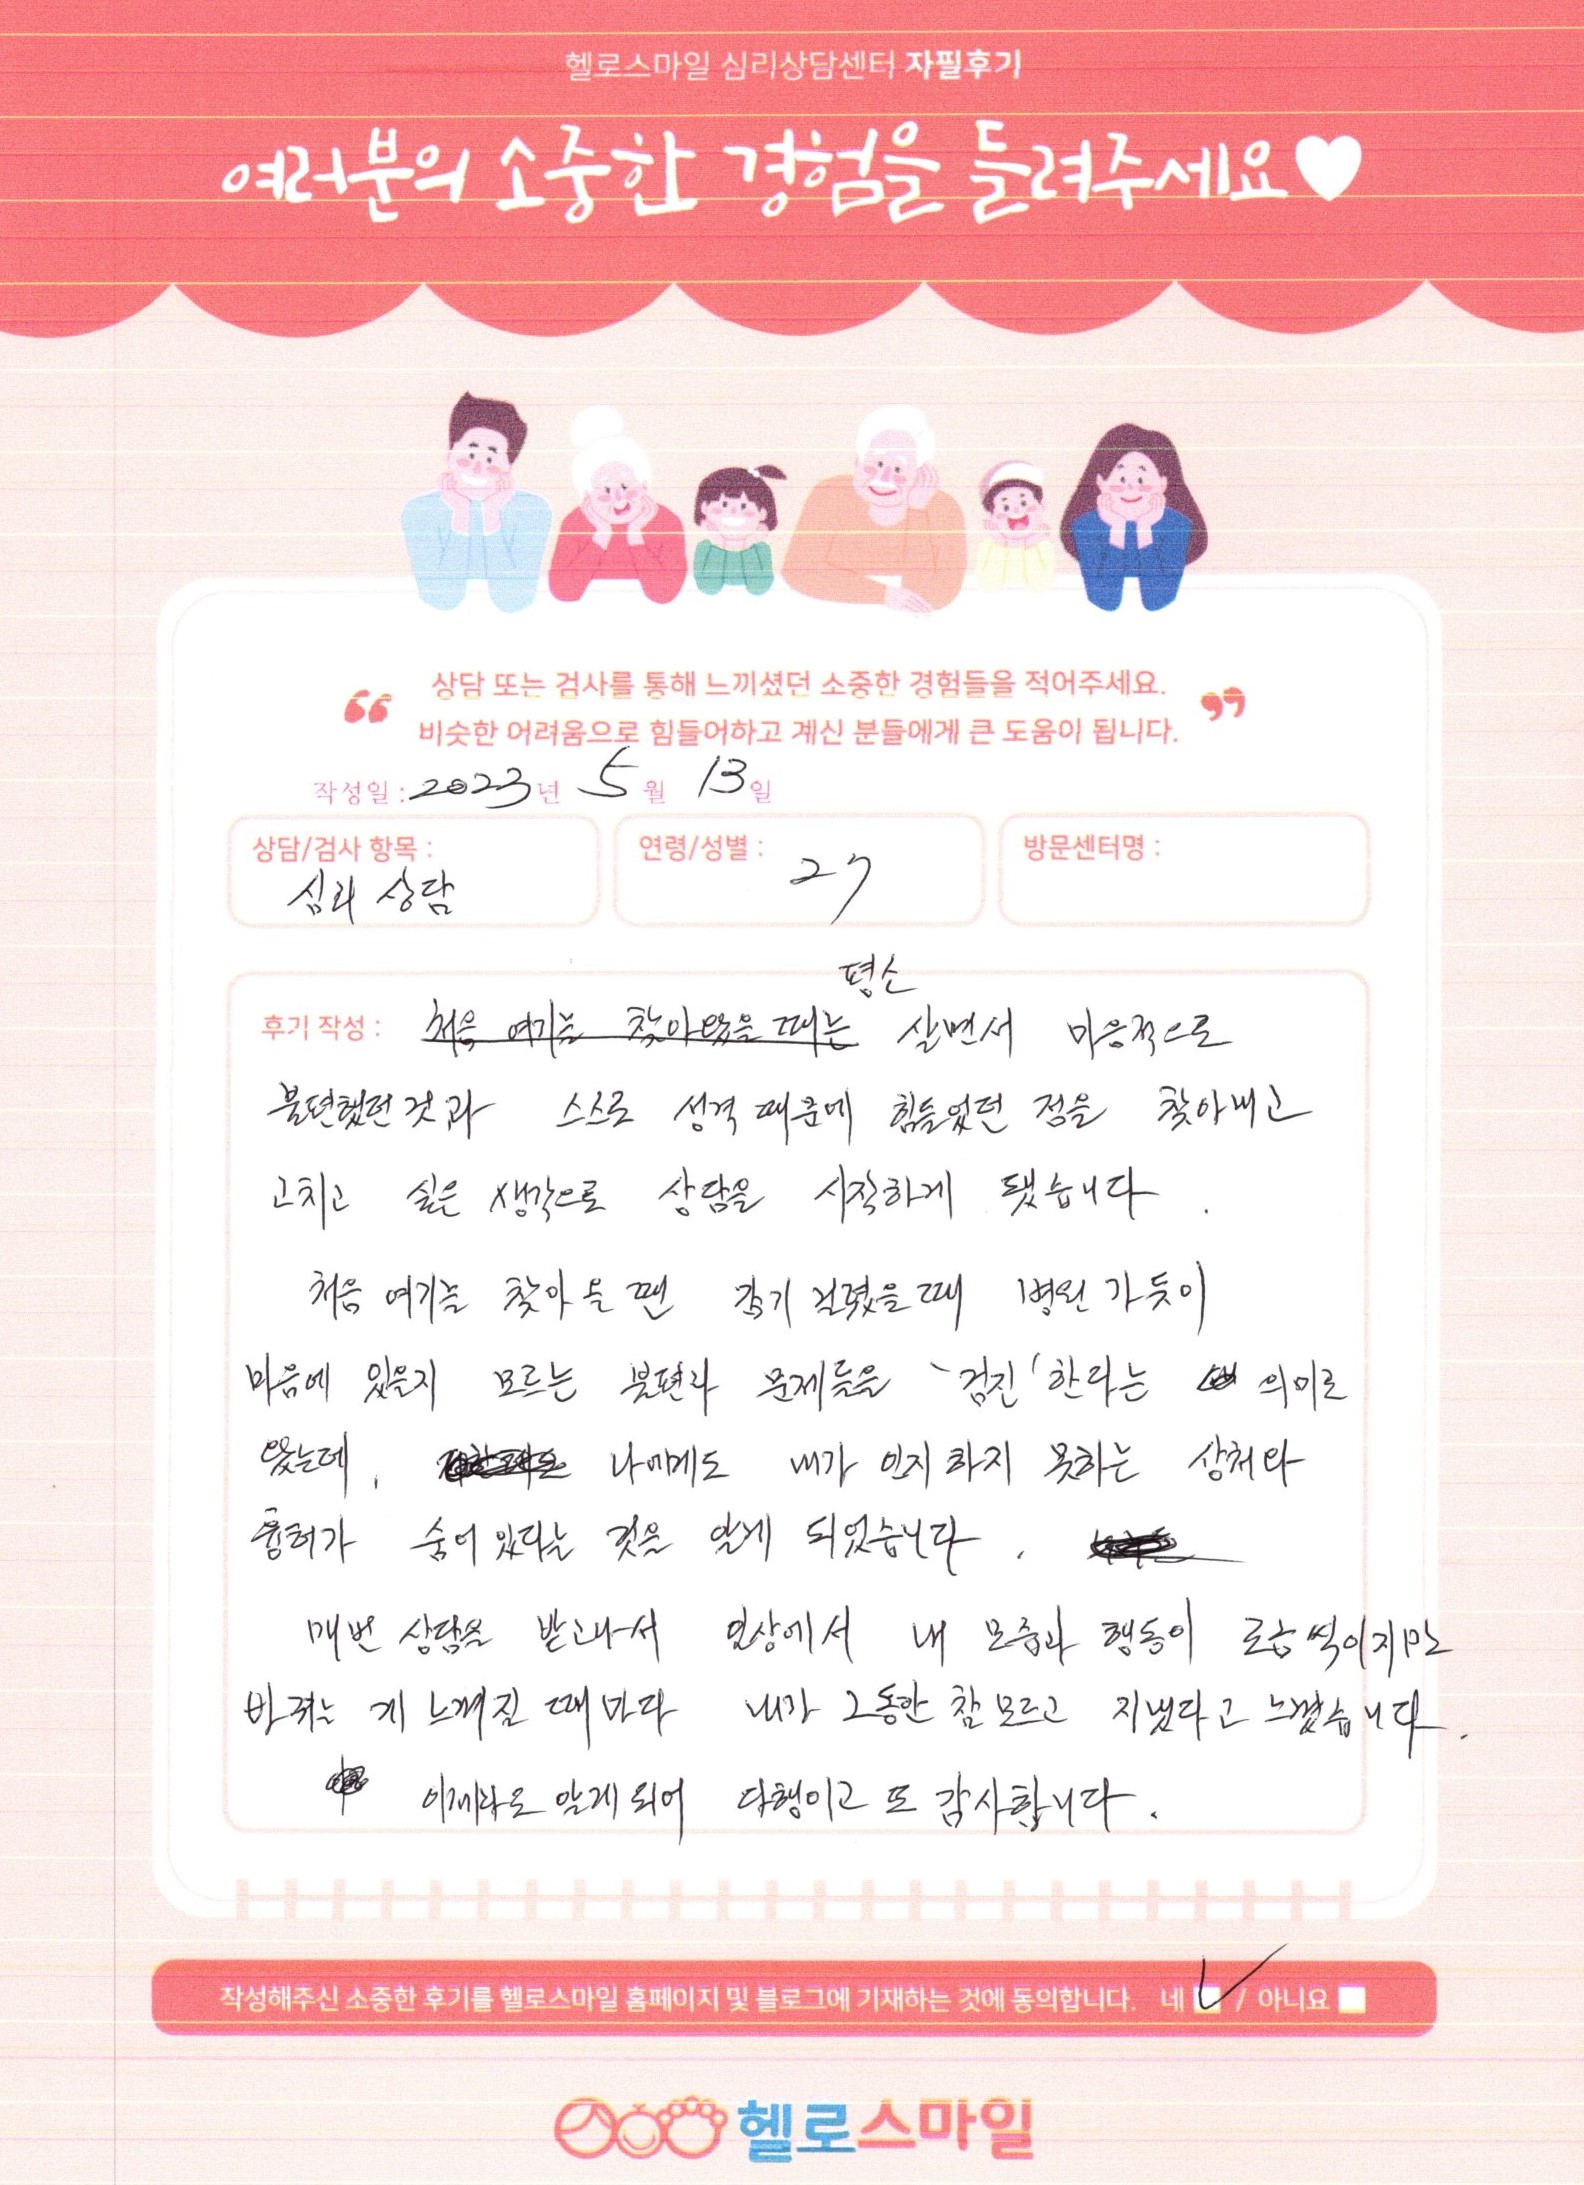 헬로스마일 심리상담센터 자필후기
여러분의 소중한 경험을 들려주세요♥
“ 상담 또는 검사를 통해 느끼셨던 소중한 경험들을 적어주세요. ”
비슷한 어려움으로 힘들어하고 계신 분들에게 큰 도움이 됩니다.
작성일 : 2023년 5월 13일
상담/검사 항목 : 심리 상담
연령/성별 : 27
방문센터명 :
평소
후기 작성 : 처음 여기를 찾아왔을 때는 살면서 마음적으로
불편했던 것과 스스로 성격 때문에 힘들었던 점을 찾아내고
고치고 싶은 생각으로 상담을 시작하게 됐습니다.
처음 여기를 찾아올 땐 감기 걸렸을 때 병원 가듯이
마음에 있을지 모르는 불편과 문제들을 '검진'한다는 의미로
왔는데, 나에게도 내가 인지하지 못하는 상처와
흉터가 숨어 있다는 것을 알게 되었습니다.
매번 상담을 받고나서 일상에서 내 모습과 행동이 조금씩이지만
바뀌는 게 느껴질 때마다 내가 그동안 참 모르고 지냈다고 느꼈습니다.
이제라도 알게 되어 다행이고 또 감사합니다.
작성해주신 소중한 후기를 헬로스마일 홈페이지 및 블로그에 기재하는 것에 동의합니다. 네 / 아니요
헬로스마일